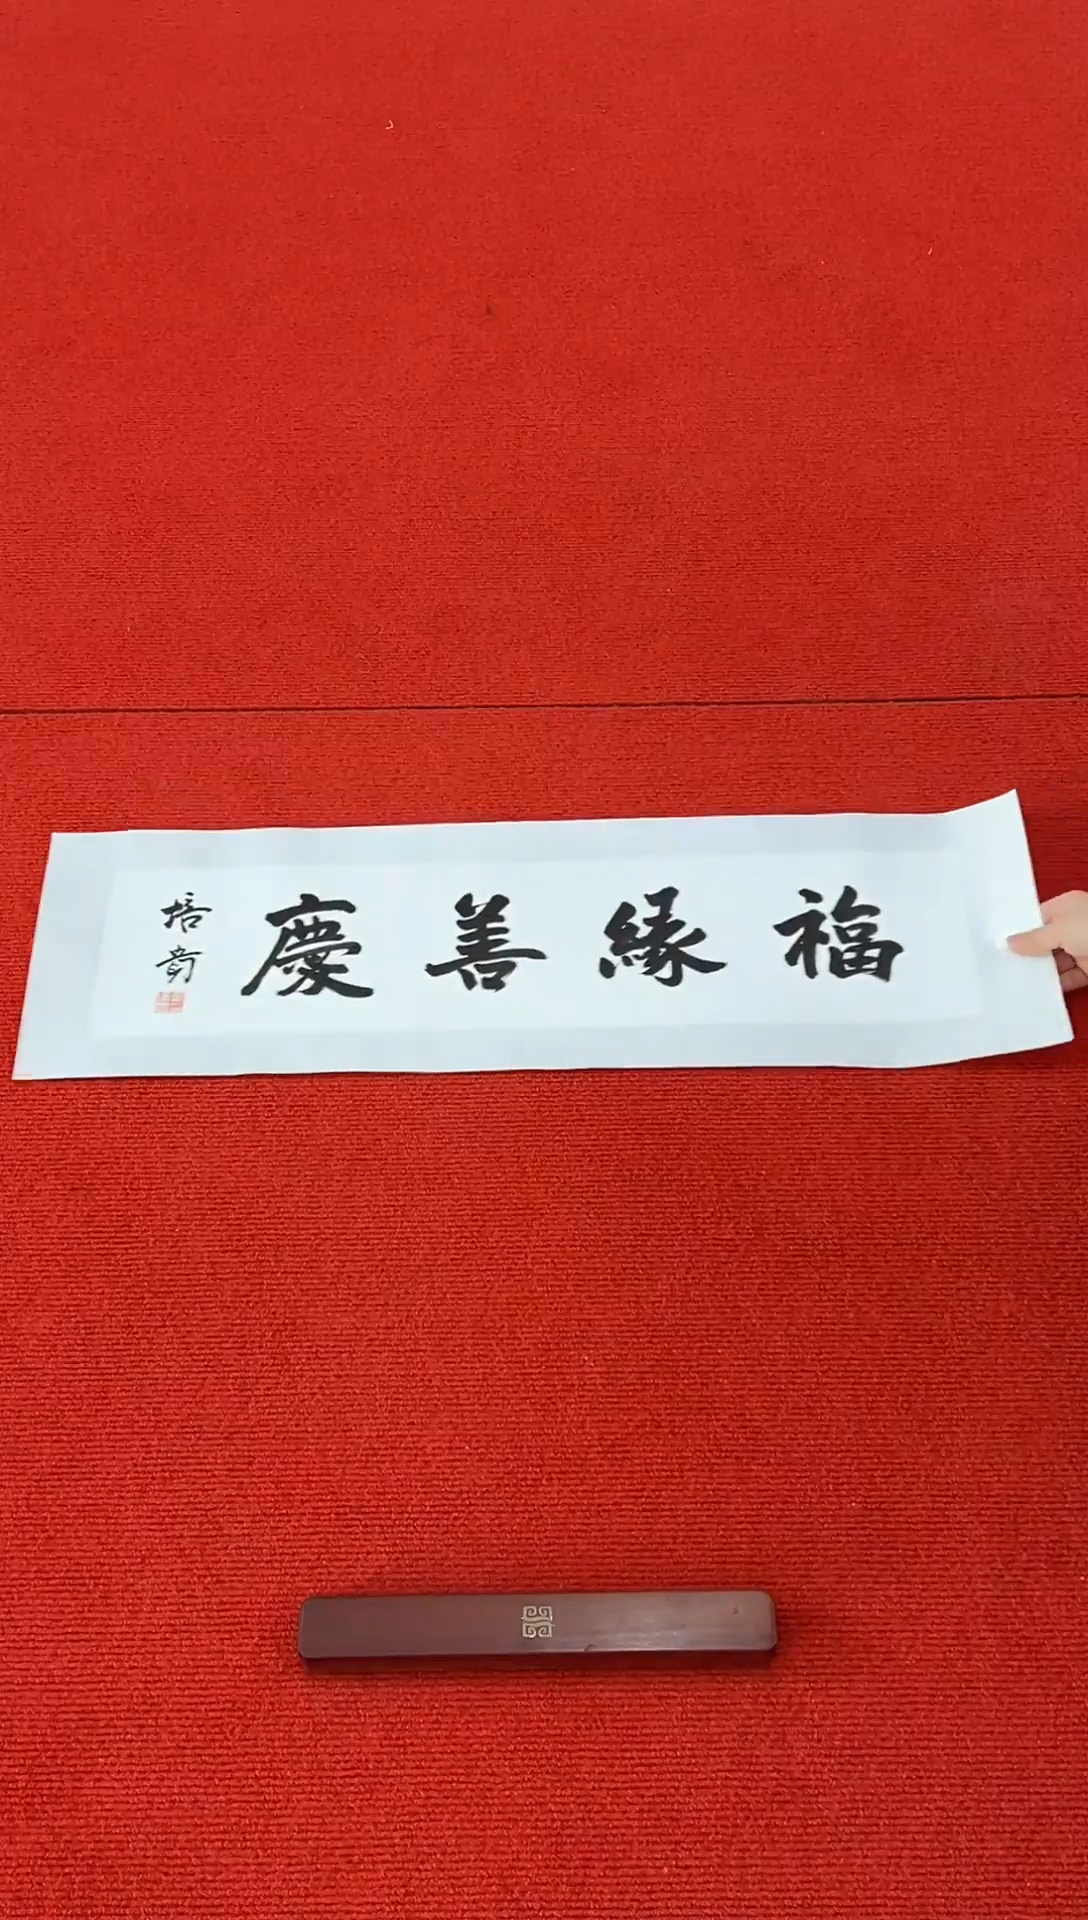 福緣善慶
培貴